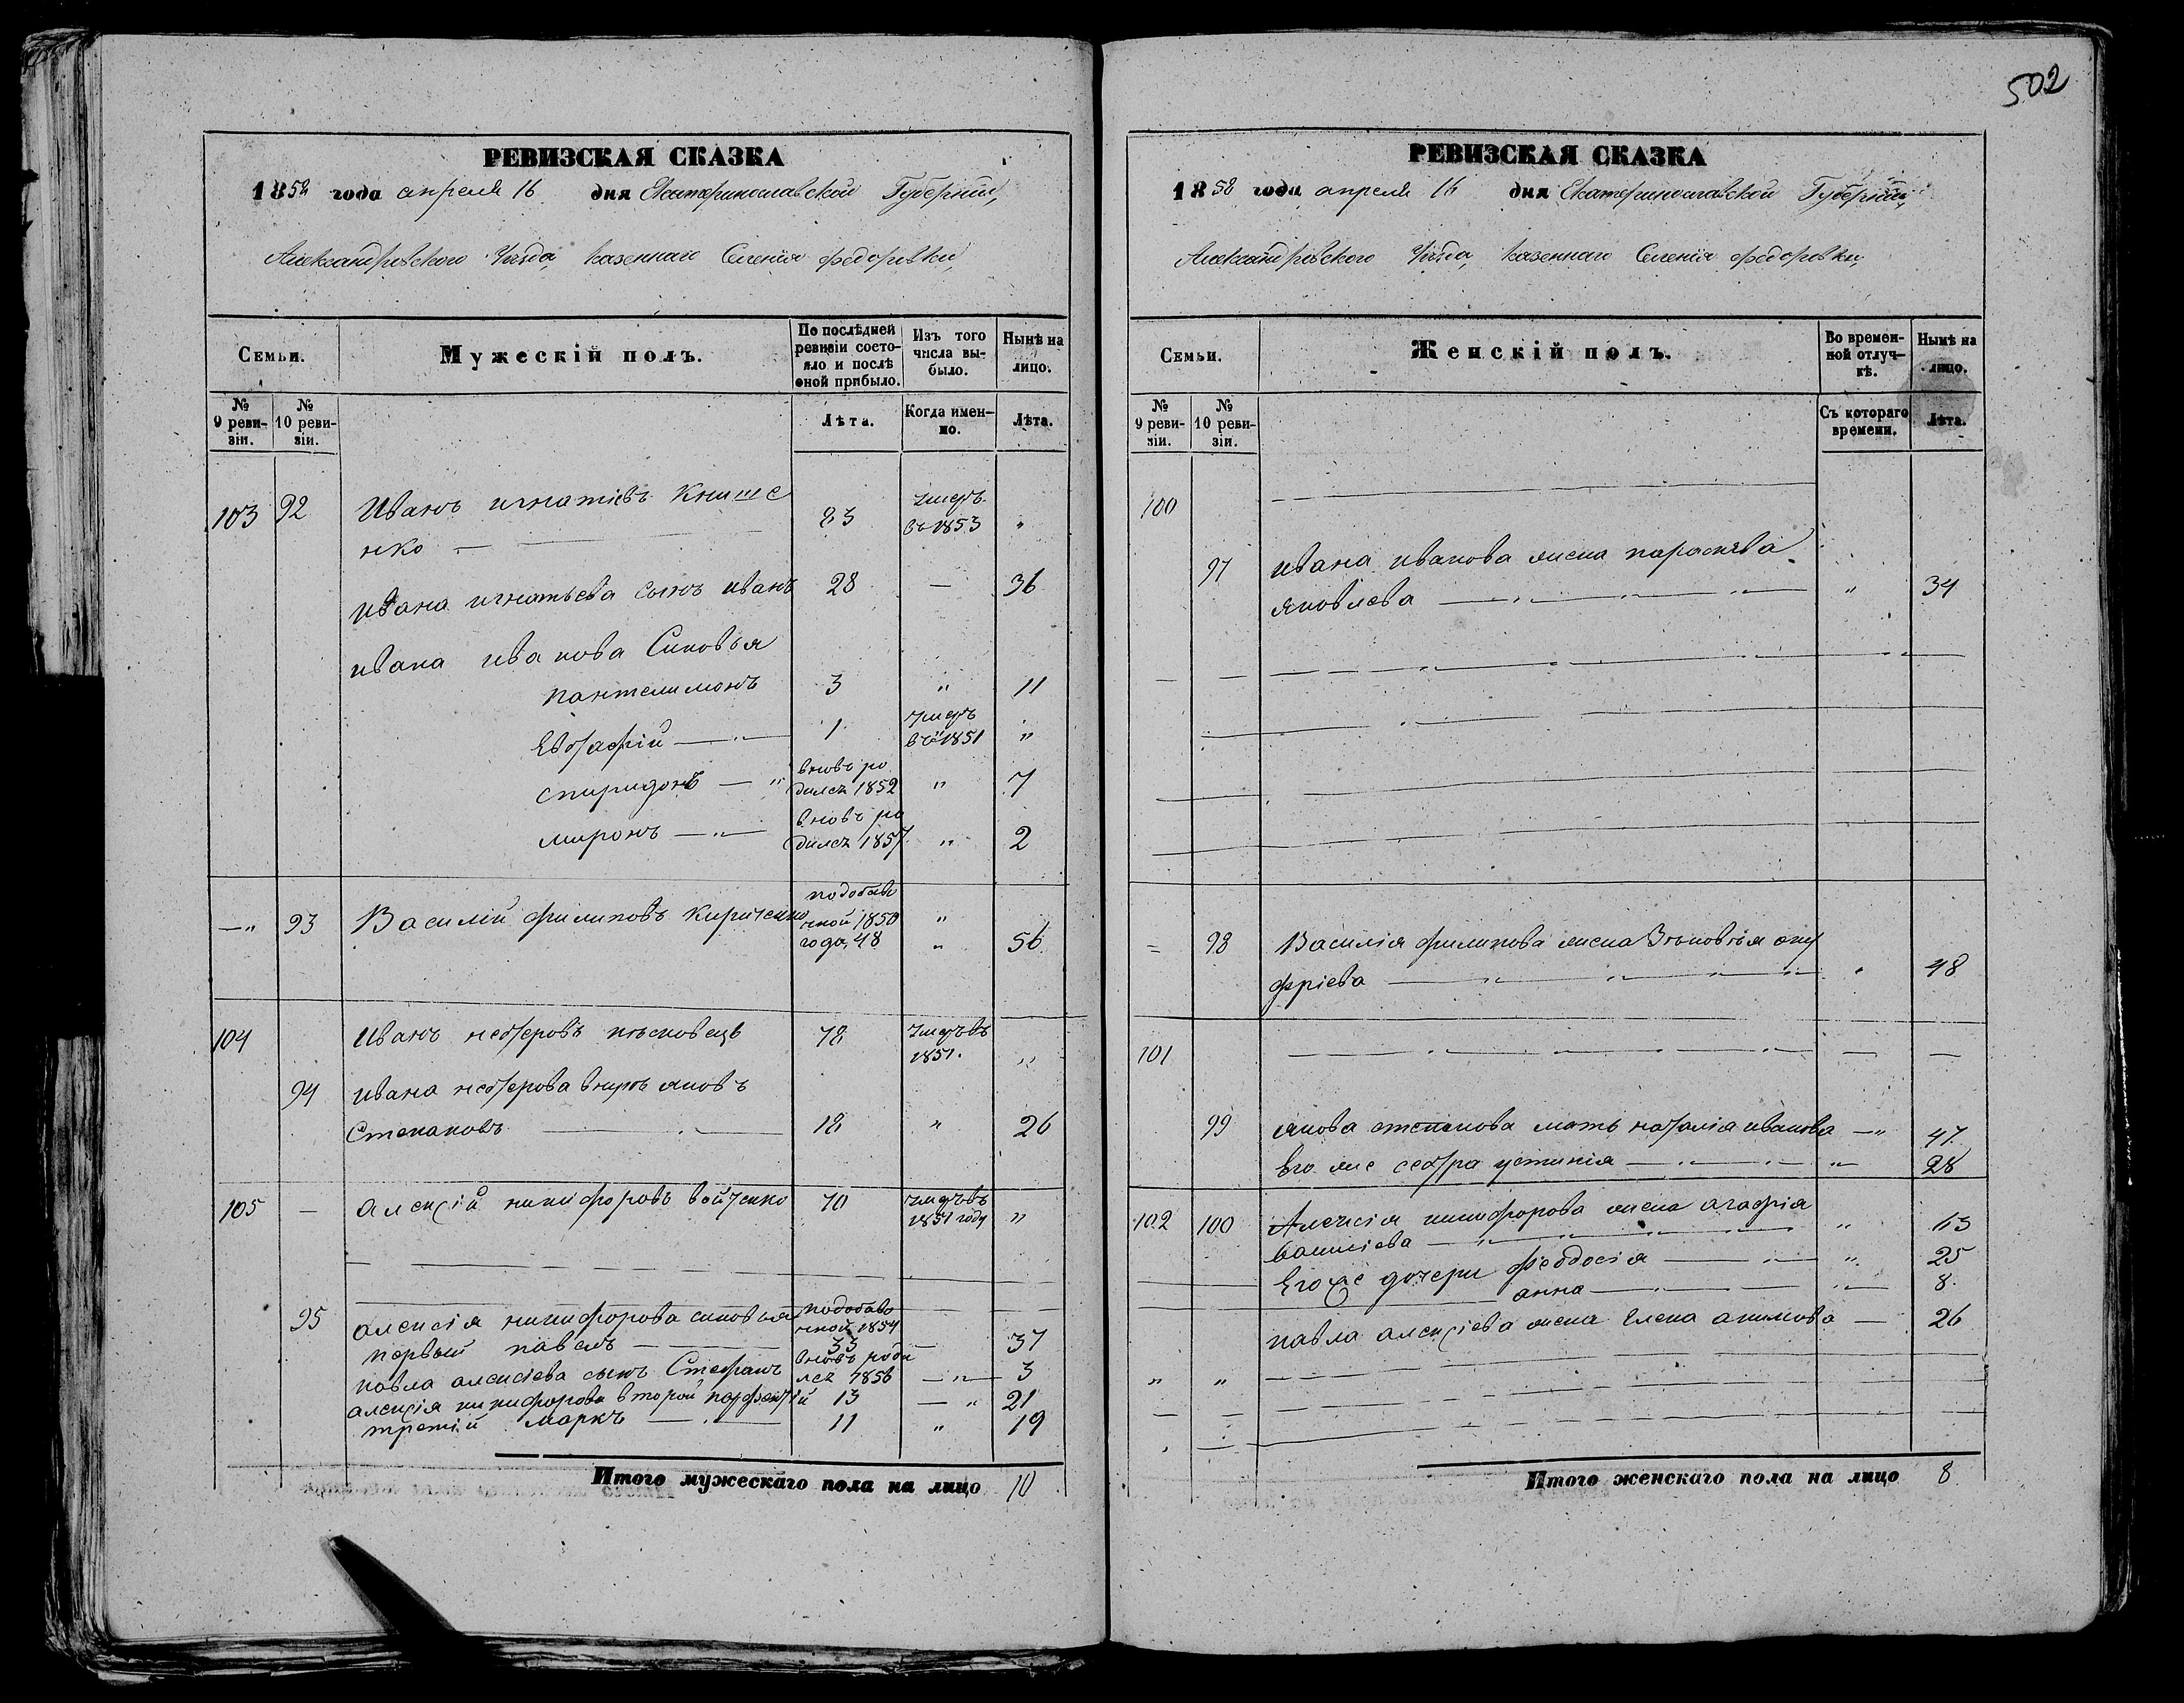 502
РЕВИЗСКАЯ СКАЗКА
1858 года апреля 16 дня Екатеринославской Губерніи,
Александровского Уѣзда, казеннаго Селенія федоровки,
Семьи.
Мужескій полъ.
По послѣдней ревизіи состояло и послѣ оной прибыло.
Изъ того числа выбыло.
Нынѣ на лицо.
№ 9 ревизіи.
№ 10 ревизіи.
Лѣта.
Когда именно.
Лѣта.
103 92 Иванъ игнатіевъ Книше
нко 83 умеръ въ 1853 "
ивана игнатьева сынъ иванъ 28 — 36
ивана иванова Синовья
пантелимонъ 3 " 11
Евстафій 1 умеръ въ 1851 "
спиридонъ вновь родился 1852 " 7
миронъ вновь родился 1857 " 2
—" 93 Василій филиповъ Кириченко
по добавочной 1850 года, 48 " 56
104 Иванъ несторовъ 78 умеръ въ 1851. "
94 ивана несторова внукъ яковъ
Степановъ 18 " 26
105 — алексій никифоровъ войченко 70 умеръ въ 1851 году "
95 алексія никифорова синовья
первый павелъ по добавочной 1854 33 — 37
павла алексіева сынъ Стефанъ вновь родился 1856 —"— 3
алексія никифорова второй парфентій 13 —" 21
третій маркъ 11 " 19
Итого мужескаго пола на лицо 10
РЕВИЗСКАЯ СКАЗКА
1858 года апреля 16 дня Екатеринославской Губерніи,
Александровского Уѣзда, казеннаго Селенія федоровки,
Семьи.
Женскій полъ.
Во временной отлучкѣ.
Нынѣ на лицо.
№ 9 ревизіи.
№ 10 ревизіи.
Съ котораго времени.
Лѣта.
100
97 ивана иванова жена параскева
яковлева " 34
= 98 Василія филипова жена Зѣновѣя ону
фріева " 48
101
99 якова степанова мать наталія иванова —" 47
Его же сестра устинія " 28
102 100 Алексія никифорова жена агафія
василіева " 63
Егоже дочери феодосія " 25
анна 8
павла алексіева жена Елена акимова — 26
Итого женскаго пола на лицо 8